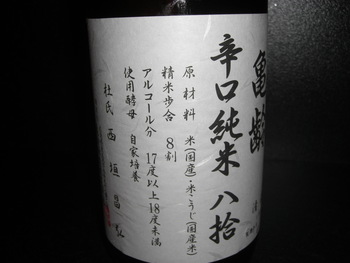 亀齢
辛口純米 八拾
原材料 米(国産)・米こうじ(国産米)
精米歩合 8割
アルコール分 17度以上18度未満
使用酵母 自家培養
杜氏 西垣昌弘
清